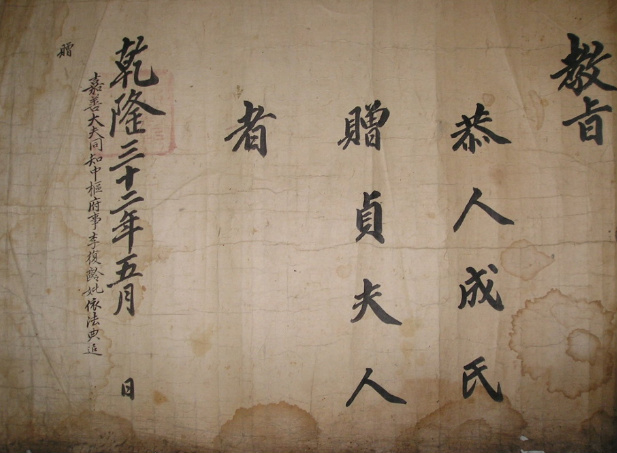 教旨
恭人成氏
贈貞夫人
者
乾隆三十二年五月 日
嘉善大夫同知中樞府事李復齡妣依法典追
贈